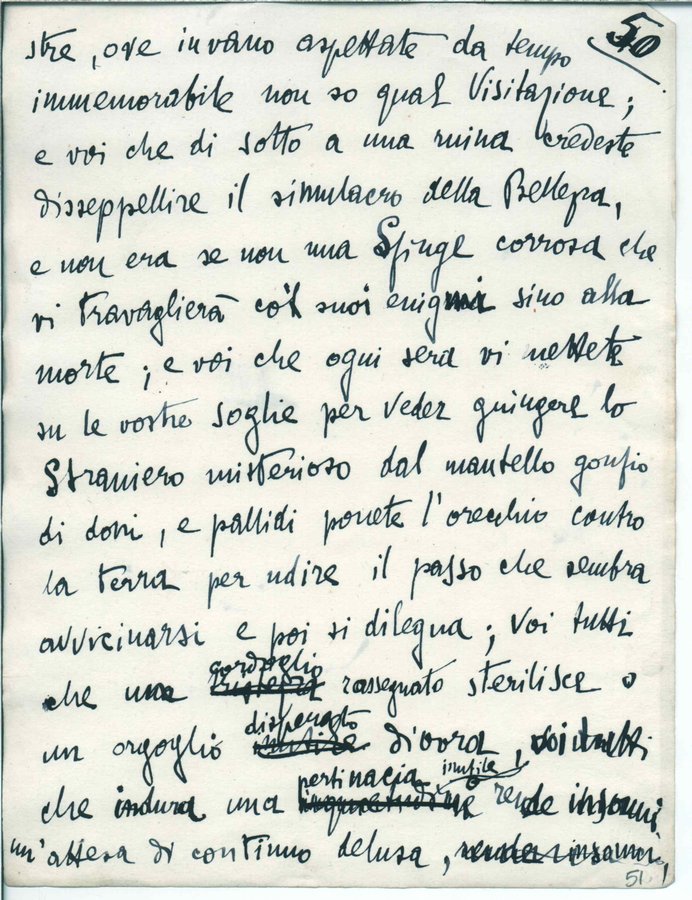 50
stre, ove invano aspettate da tempo
immemorabile non so qual Visitazione;
e voi che di sotto a una ruina credeste
disseppellire il simulacro della Bellezza,
e non era se non una Sfinge corrosa che
vi travaglierà co'i suoi enigmi sino alla
morte; e voi che ogni sera vi mettete
su le vostre soglie per veder giungere lo
Straniero misterioso dal mantello gonfio
di doni, e pallidi ponete l'orecchio contro
la terra per udire il passo che sembra
avvicinarsi e poi si dilegua; Voi tutti
cordoglio
che un rassegnato sterilisce o
disperato
un orgoglio divora, voi tutti
pertinacia inutile
che indura una rende insonni
un'attesa di continuo delusa,
51